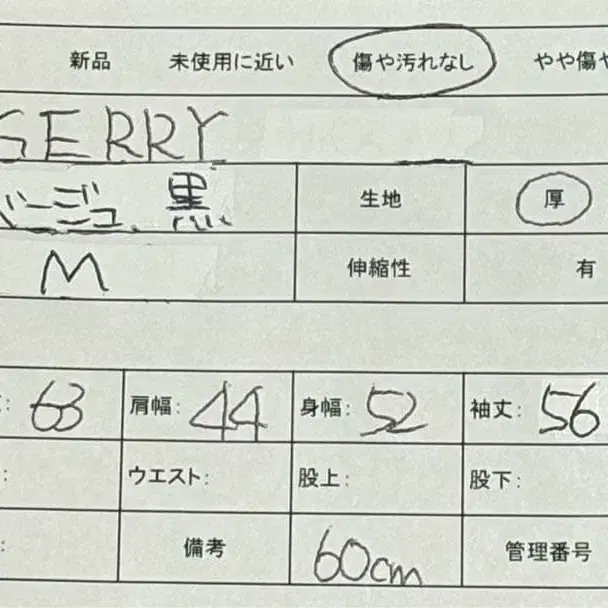 新品 未使用に近い 傷や汚れなし やや傷や
GERRY
ベージュ、黒 生地 厚
M 伸縮性 有
: 63 肩幅: 44 身幅: 52 袖丈: 56
: ウエスト: 股上: 股下:
: 備考 60cm 管理番号